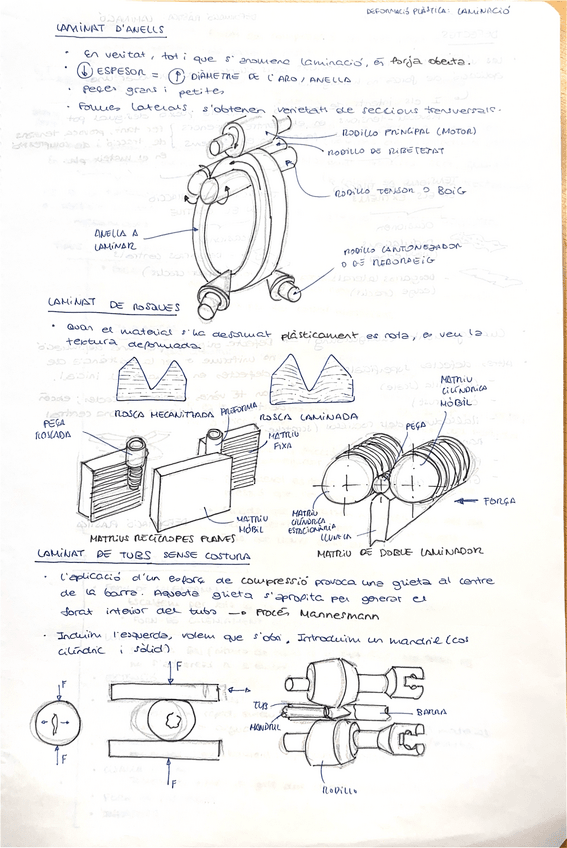 DEFORMACIÓ PLÀSTICA: LAMINACIÓ
LAMINAT D'ANELLS
· En veritat, tot i que s'anomena laminació, és forja oberta.
· ↓ ESPESOR = ↑ DIÀMETRE DE L'ARO/ANELLA
· Peces grans i petites
· Formes laterals: s'obtenen varietats de seccions transversals.
RODILLO PRINCIPAL (MOTOR)
RODILLO DE
RODILLO TENSOR O BOIG
ANELLA A
LAMINAR
RODILLO CANTONEJADOR
O DE REBORDEIG
LAMINAT DE ROSQUES
· Quan el material s'ha deformat plàsticament es nota, es veu la
textura deformada.
ROSCA MECANITZADA
ROSCA LAMINADA
PEÇA
ROSCADA
PREFORMA
MATRIU
FIXA
MATRIU
MÒBIL
MATRIUS RECÍPROQUES PLANES
MATRIU
CILÍNDRICA
MÒBIL
PEÇA
FORÇA
MATRIU
CILÍNDRICA
ESTACIONÀRIA
MATRIU DE DOBLE LAMINADOR
LAMINAT DE TUBS SENSE COSTURA
· L'aplicació d'un esforç de compressió provoca una grieta al centre
de la barra. Aquesta grieta s'aprofita per generar el
forat interior del tubs → PROCÉS MANNESMANN
· Induïm l'esquerda, volem que s'obri. Introduïm un mandril (cos
cilíndric i sòlid)
F
F
F
F
TUB
MANDRIL
BARRA
RODILLO